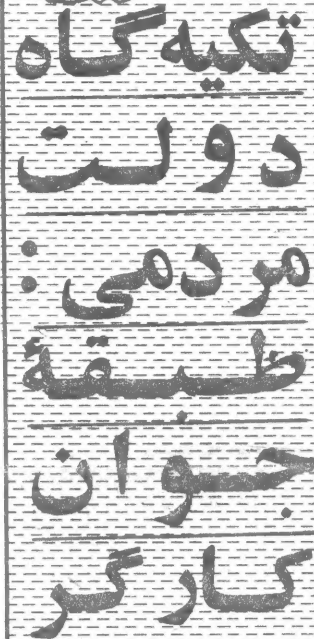 تکیه گاه
دولت
مردمی:
طبقهٔ
جوان
کارگر